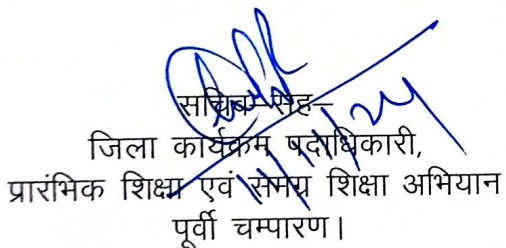 सचिव–सह–
जिला कार्यक्रम पदाधिकारी,
प्रारंभिक शिक्षा एवं समग्र शिक्षा अभियान
पूर्वी चम्पारण।